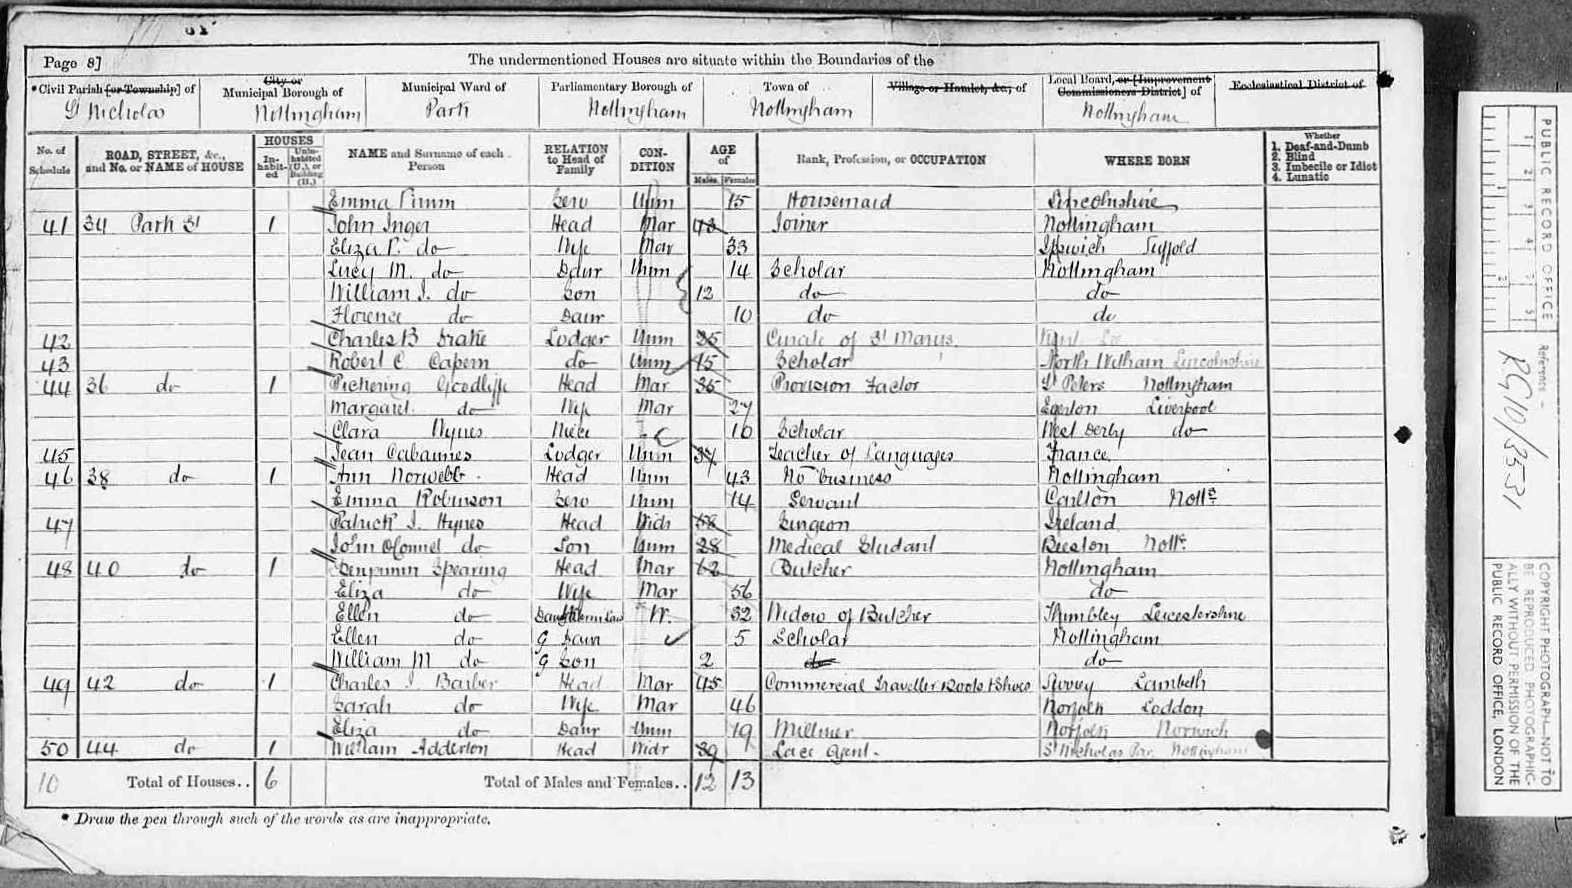 Page 8]
The undermentioned Houses are situate within the Boundaries of the
*Civil Parish [or Township] of
City or Municipal Borough of
Municipal Ward of
Parliamentary Borough of
Town of
Village or Hamlet, &c., of
Local Board, or [Improvement Commissioners District] of
Ecclesiastical District of
St Nicholas Nottingham Park Nottingham Nottingham Nottingham
No. of Schedule
ROAD, STREET, &c., and No. or NAME of HOUSE
HOUSES
Inhabited
Uninhabited (U.), or Building (B.)
NAME and Surname of each Person
RELATION to Head of Family
CONDITION
AGE of
Males Females
Rank, Profession, or OCCUPATION
WHERE BORN
Whether
1. Deaf-and-Dumb
2. Blind
3. Imbecile or Idiot
4. Lunatic
Emma Serv Unm 15 Housemaid Lincolnshire
41 34 Park St 1 John Inger Head Mar 43 Joiner Nottingham
Eliza P. do Wife Mar 33 Ipswich Suffold
Lucy M. do Daur Unm 14 Scholar Nottingham
William J. do Son 12 do do
Florence do Daur 10 do do
42 Charles B Drake Lodger Unm 25 Curate of St Marys
43 Robert C. Capern do Unm 15 Scholar North Witham Lincolnshire
44 36 do 1 Pickering Goodliffe Head Mar 35 Provision Factor St Peters Nottingham
Margaret do Wife Mar 27 Egerton Liverpool
Clara Hynes Niece 10 Scholar West Derby do
45 Jean Cabannes Lodger Unm 37 Teacher of Languages France
46 38 do 1 Ann Norwebb Head Unm 43 No business Nottingham
Emma Robinson Serv Unm 14 Servant Carlton Notts
47 Patrick J. Hynes Head Widr 58 Surgeon Ireland
John OConnel do Son Unm 28 Medical Studant Beeston Notts
48 40 do 1 Benjamin Spearing Head Mar 62 Butcher Nottingham
Eliza do Wife Mar 56 do
Ellen do Daughter in Law W. 32 Widow of Butcher Thumbley Leicestershire
Ellen do G Daur 5 Scholar Nottingham
William M do G Son 2 do do
49 42 do 1 Charles J. Barber Head Mar 45 Commercial Traveller Boots & Shoes Surrey Lambeth
Sarah do Wife Mar 46 Norfolk Loddon
Eliza do Daur Unm 19 Milliner Norfolk Norwich
50 44 do 1 William Adderton Head Widr 39 Lace Agent. St Nicholas Par Nottingham
10 Total of Houses.. 6 Total of Males and Females.. 12 13
* Draw the pen through such of the words as are inappropriate.
PUBLIC RECORD OFFICE
Reference:-
RG10/3531
COPYRIGHT PHOTOGRAPH—NOT TO
BE REPRODUCED PHOTOGRAPHIC-
ALLY WITHOUT PERMISSION OF THE
PUBLIC RECORD OFFICE, LONDON